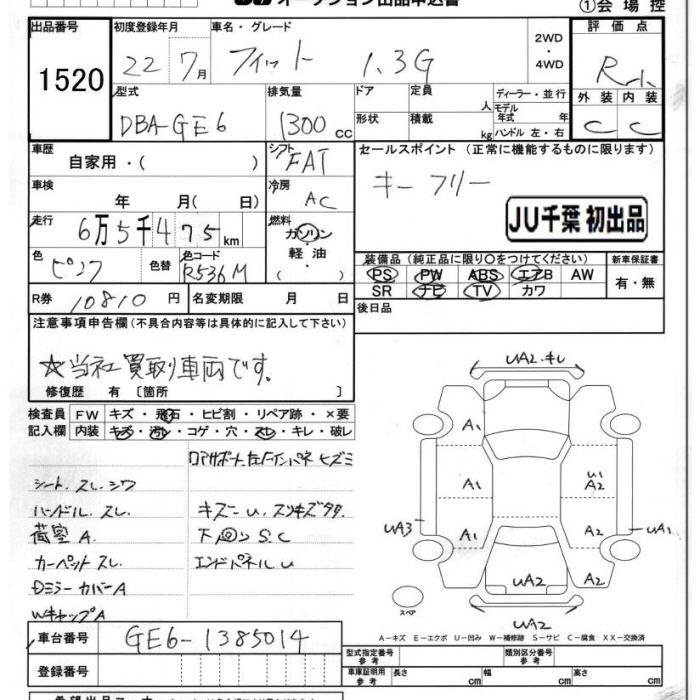 ①会場控
出品番号 初度登録年月 車名・グレード 2WD ・ 4WD 評価点
1520 22 7月 フィット 1.3G
型式 排気量 ドア 定員 人 ディーラー・並行 外装 内装
モデル年式 年
DBA-GE6 1300cc 形状 積載 kg ハンドル 左・右 C C
車歴 自家用・( ) シフト FAT セールスポイント (正常に機能するものに限ります)
車検 年 月( 日) 冷房 AC キーフリー
JU千葉 初出品
走行 6万5千475km 燃料 ガソリン・軽油・
色 ピンク 色替 色コード R536M 装備品(純正品に限り○をつけてください) 新車保証書
PS PW ABS エアB AW 有・無
SR ナビ TV カワ
R券 10810円 名変期限 月 日 後日品
注意事項申告欄(不具合内容等は具体的に記入して下さい)
☆当社買取り車両です。
修復歴 有 [箇所 ]
検査員 FW キズ・飛石・ヒビ割・リペア跡・×要
記入欄 内装 キズ・汚レ・コゲ・穴・スレ・キレ・破レ
シート.スレ.シワ
ハンドル.スレ. キズーU.スリキズタタ
荷室A. 下回りS.C
カーペットスレ. エンドパネルU
DミラーカバーA
WキャップA
UA2.キレ
A1 A1
A1 U1 A2
UA3 A2 UA1
UA2 A2
スペア
UA2
A－キズ E－エクボ U－凹み W－補修跡 S－サビ C－腐食 XX－交換済
車台番号 GE6-1385014
登録番号
型式指定番号 参考 類別区分番号 参考
車庫証明用 参考 長さ 幅 高さ